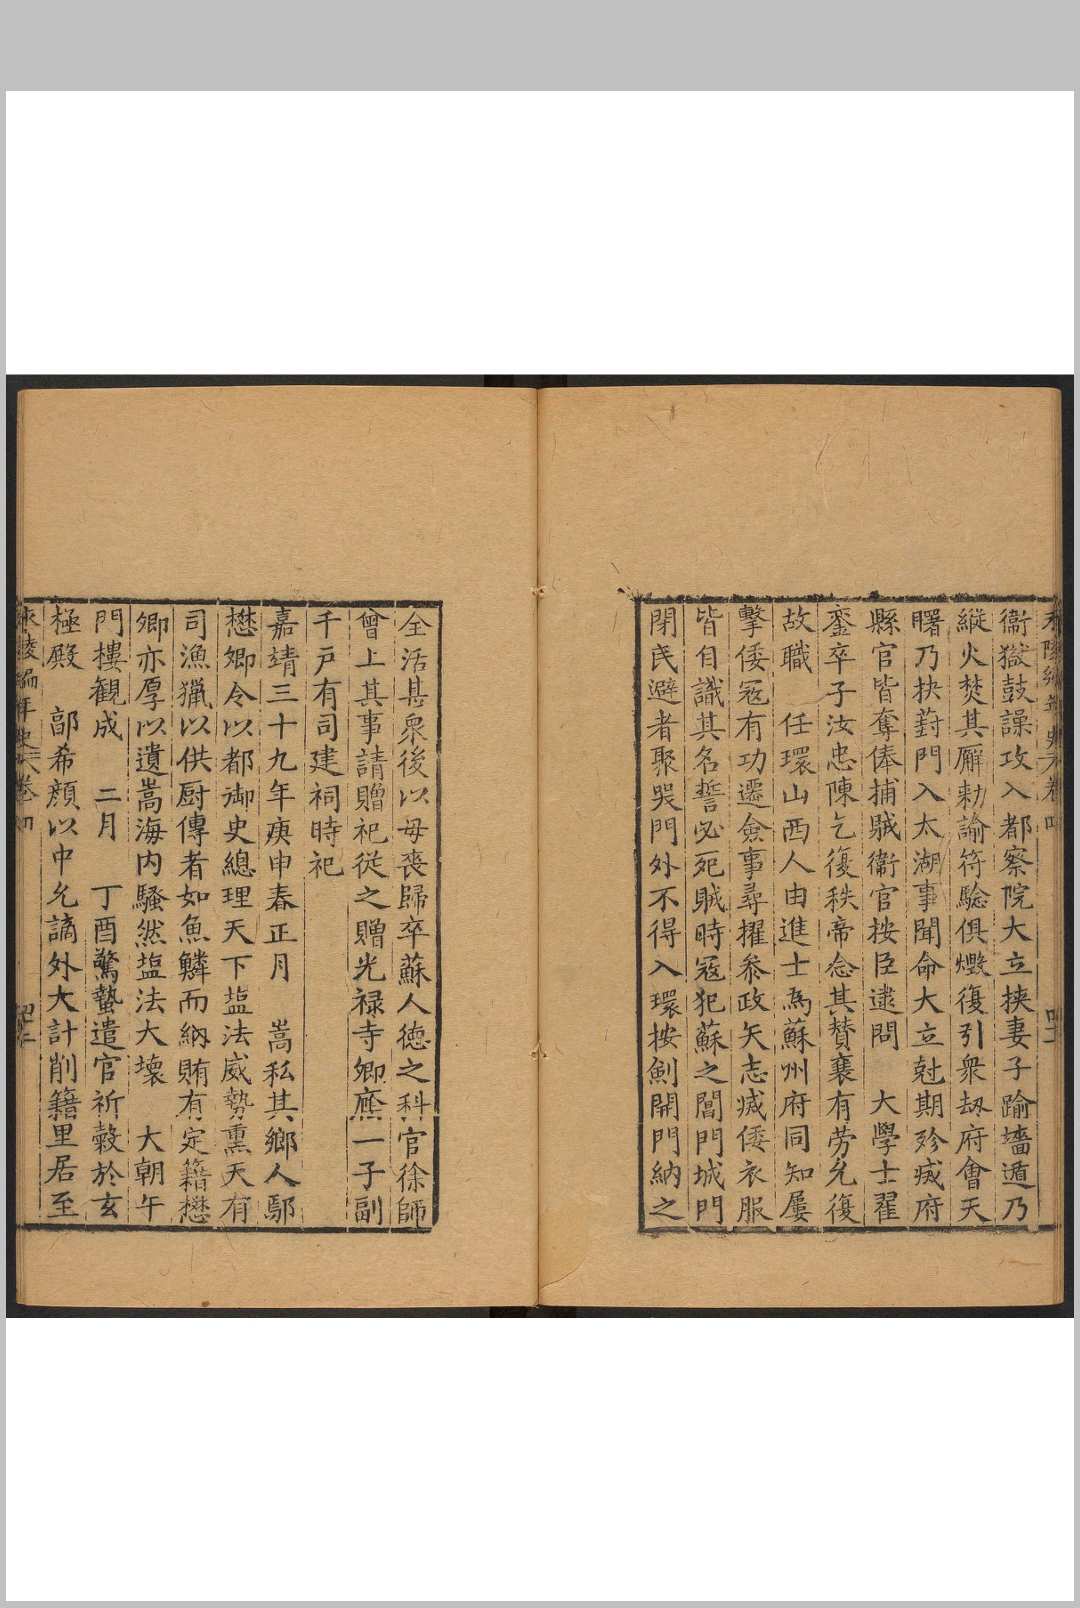 衞獄鼓譟攻入都察院大立挾妻子踰墻遁乃
縱火焚其廨勅諭符騐俱燬復引衆刼府會天
曙乃抉葑門入太湖事聞命大立尅期殄滅府
縣官皆奪俸捕賊衞官按臣逮問 大學士翟
鑾卒子汝忠陳乞復秩帝念其贊襄有劳允復
故職 任環山西人由進士爲蘇州府同知屢
擊倭冦有功遷僉事尋擢叅政矢志滅倭衣服
皆自識其名誓必死賊時冦犯蘇之閶門城門
閉民避者聚哭門外不得入環按劍開門納之
全活甚衆後以母喪歸卒蘇人德之科官徐師
曾上其事請贈祀從之贈光禄寺卿廕一子副
千戶有司建祠時祀
嘉靖三十九年庚申春正月 嵩私其鄉人鄢
懋卿令以都御史總理天下塩法威勢熏天有
司漁獵以供厨傳者如魚鱗而納賄有定籍懋
卿亦厚以遺嵩海内騷然塩法大壞 大朝午
門樓観成 二月 丁酉驚蟄遣官祈穀於玄
極殿 郭希顏以中允謫外大計削籍里居至